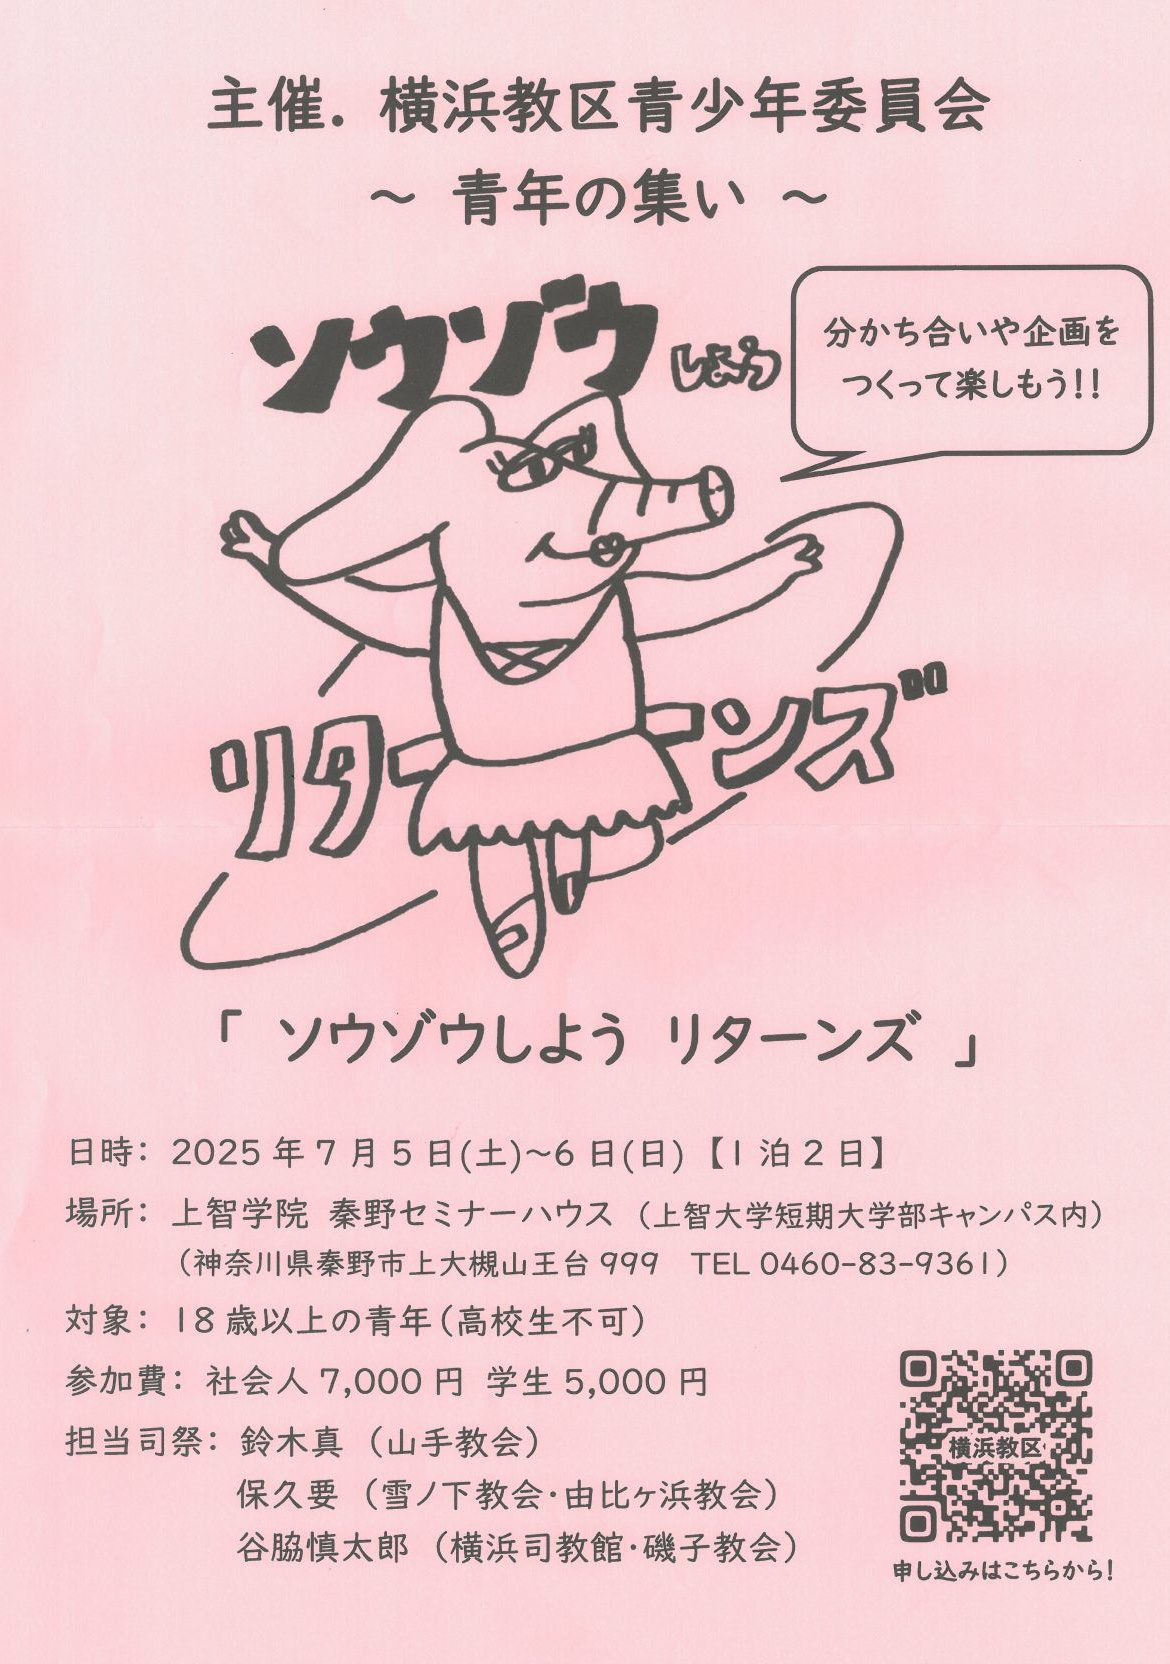 主催．横浜教区青少年委員会
～ 青年の集い ～
ソウゾウ
しよう
分かち合いや企画を
つくって楽しもう!!
リターンズ
「 ソウゾウしよう リターンズ 」
日時： 2025 年 7 月 5 日(土)～6 日(日)【1 泊 2 日】
場所： 上智学院 秦野セミナーハウス （上智大学短期大学部キャンパス内）
（神奈川県秦野市上大槻山王台 999 TEL 0460-83-9361）
対象： 18 歳以上の青年（高校生不可）
参加費： 社会人 7,000 円 学生 5,000 円
担当司祭： 鈴木真 （山手教会）
保久要 （雪ノ下教会・由比ヶ浜教会）
谷脇慎太郎 （横浜司教館・磯子教会）
横浜教区
申し込みはこちらから！